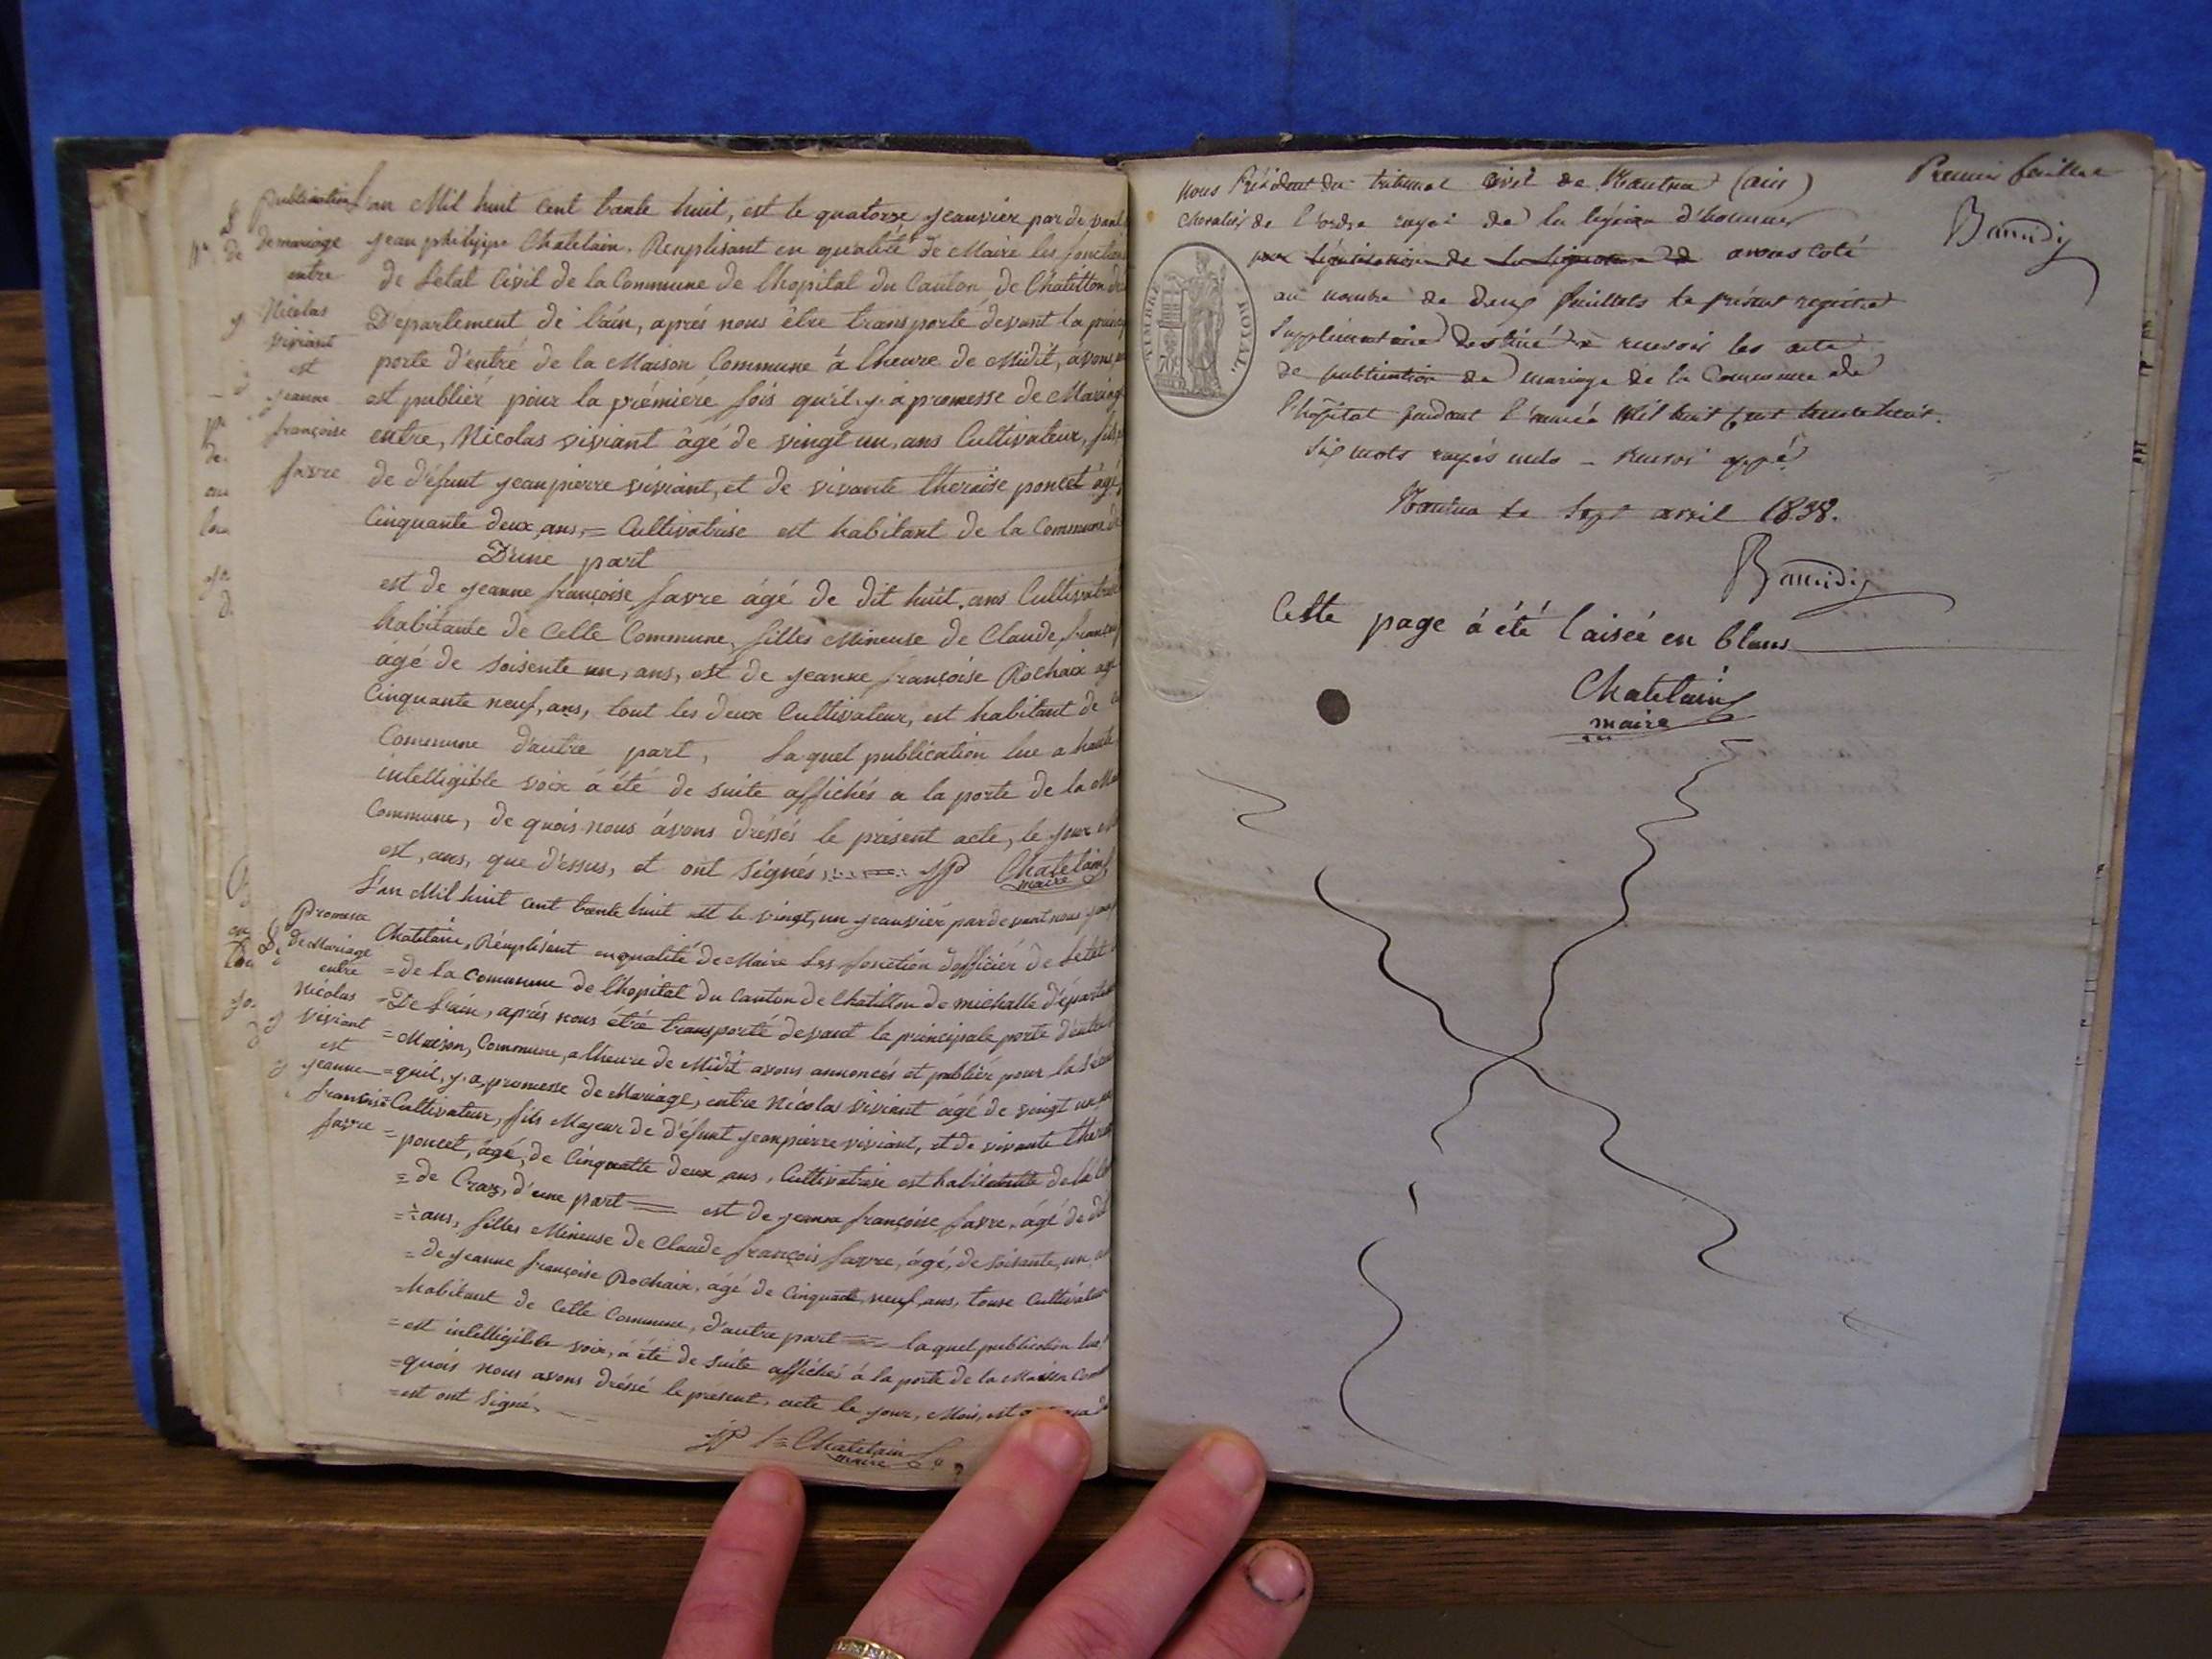 publication
de mariage
entre
Nicolas
viviant
est
jeanne
françoise
favre
L'an Mil huit cent trante huit, est le quatorze jeanvier par de vant
jean philippe Chatelain. Remplisant en qualité de Maire les fonction
de Letat Civil de la Commune de lhopital du Canton de Chatillon de
Département de l'ain, aprés nous être transporté devant la princip
porte d'entré de la Maison Commune à lheure de Midit, avons
est publiér pour la prémiéré fois qu'il y. à promesse de Mariage
entre, Nicolas viviant âgé de vingt un, ans Cultivateur, fils
de d'éfunt jeanpierre viviant, et de vivante theraise poncet âgé
Cinquante deux, ans, = Cultivatrise est habitant de la Commune de
D'une part
est de jeanne françoise favre âgé de dit huit, ans Cultivatrise
habitante de Cette Commune, filles Mineuse de Claude françois
agé de soisente un, ans, est de jeanne françoise Rochaix agé
Cinquante neuf, ans, tout les deux Cultivateur, est habitant de
Commune d'autre part, La quel publication lue a haute
intelligible voix à été de suite affichés a la porte de la Mai
Commune, de quois nous àvons dréssés le présent acte, le jour
est, ans, que d'essus, et ont signés, JP Chatelain
maire
Promesse
de Mariage
entre
Nicolas
viviant
est
jeanne
fransoise
favre
L'an Mil huit cent trente huit est le vingt, un jeanviér par de vant nous jean
Chatelain, Rémplisént en qualité de Maire Les fonction d'officiér de Letat
= de la Commune de lhopital du Canton de Chatillon de michalle d'épartem
= De L'ain, aprés nous étre transporté devant la principale porte d'entré
= Maison, Commune, a lheure de Midit avons annoncés et publiér pour la Sécon
= quil, y. a, promesse de Mariage, entre Nicolas viviant âgé de vingt un, an
= Cultivateur, fils Majeur de d'éfunt jeanpierre viviant, et de vivante théré
= poncet, âgé, de Cinquatte deux ans, Cultivatrise est habitante de la Co
= de Craz, d'une part = est de jeanne françoise favre, âgé de dit
= ans, filles Mineuse de Claude françois favre, âgé, de soisante, un
= de jeanne françoise Rochaix, âgé de Cinquante, neuf, ans, touse Cultivateur
= habitant de Cette Commune, d'autre part == la quel publication lue
= est intelligible voix, à été de suite affichés à la porte de la Maison Com
= quois nous avons dréssé le présent, acte le jour, Mois, est
= est ont Signé,
JP Chatelain
maire
Premier feuillet
Baudy
nous Président du tribunal civil de Nantua (ain)
Chevalier de l'ordre royal de la légion d'honneur
pour légalisation de la signature de avons coté
au nombre de deux feuillets le présent registre
supplémentaire destiné à recevoir les acte
de publication de mariage de la Commune de
l'hôpital pendant l'année Mil huit cent trente huit.
Six mots rayés nuls – renvoi appé
Nantua le Sept avril 1838.
TIMBRE ROYAL.
Cette page à été l aiseé en blans
Chatelain
maire